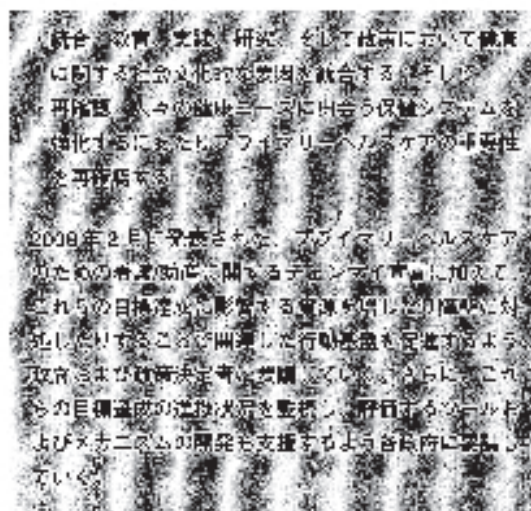 統合：教育、実践、研究、そして政策において健康
に関する社会文化的な要因を統合する。そして
再確認：人々の健康ニーズに出会う保健システムを
強化するにあたりプライマリーヘルスケアの重要性
を再確認する
2008年2月に発表された、プライマリーヘルスケア
のための看護/助産に関するチェンマイ宣言に加えて、
これらの目標達成に影響する資源を増したり
したりすることで関連した行動
および政策決定者に要請していく。さらに、これ
らの目標達成の進捗状況を監視し、評価するツールお
よびメカニズムの開発も支援するよう各政府に要請し
ていく。